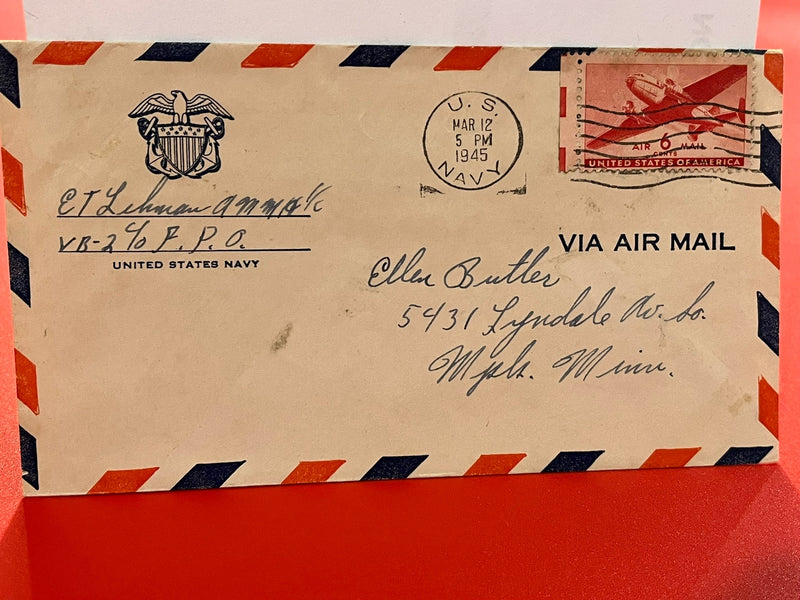 U. S.
MAR 12
5 PM
1945
NAVY
AIR 6 MAIL
CENTS
UNITED STATES OF AMERICA
E T Lehman AMMH 1/c
VB-2 c/o F. P. O.
UNITED STATES NAVY
VIA AIR MAIL
Ellen Butler
5431 Lyndale Av. So.
Mpls. Minn.